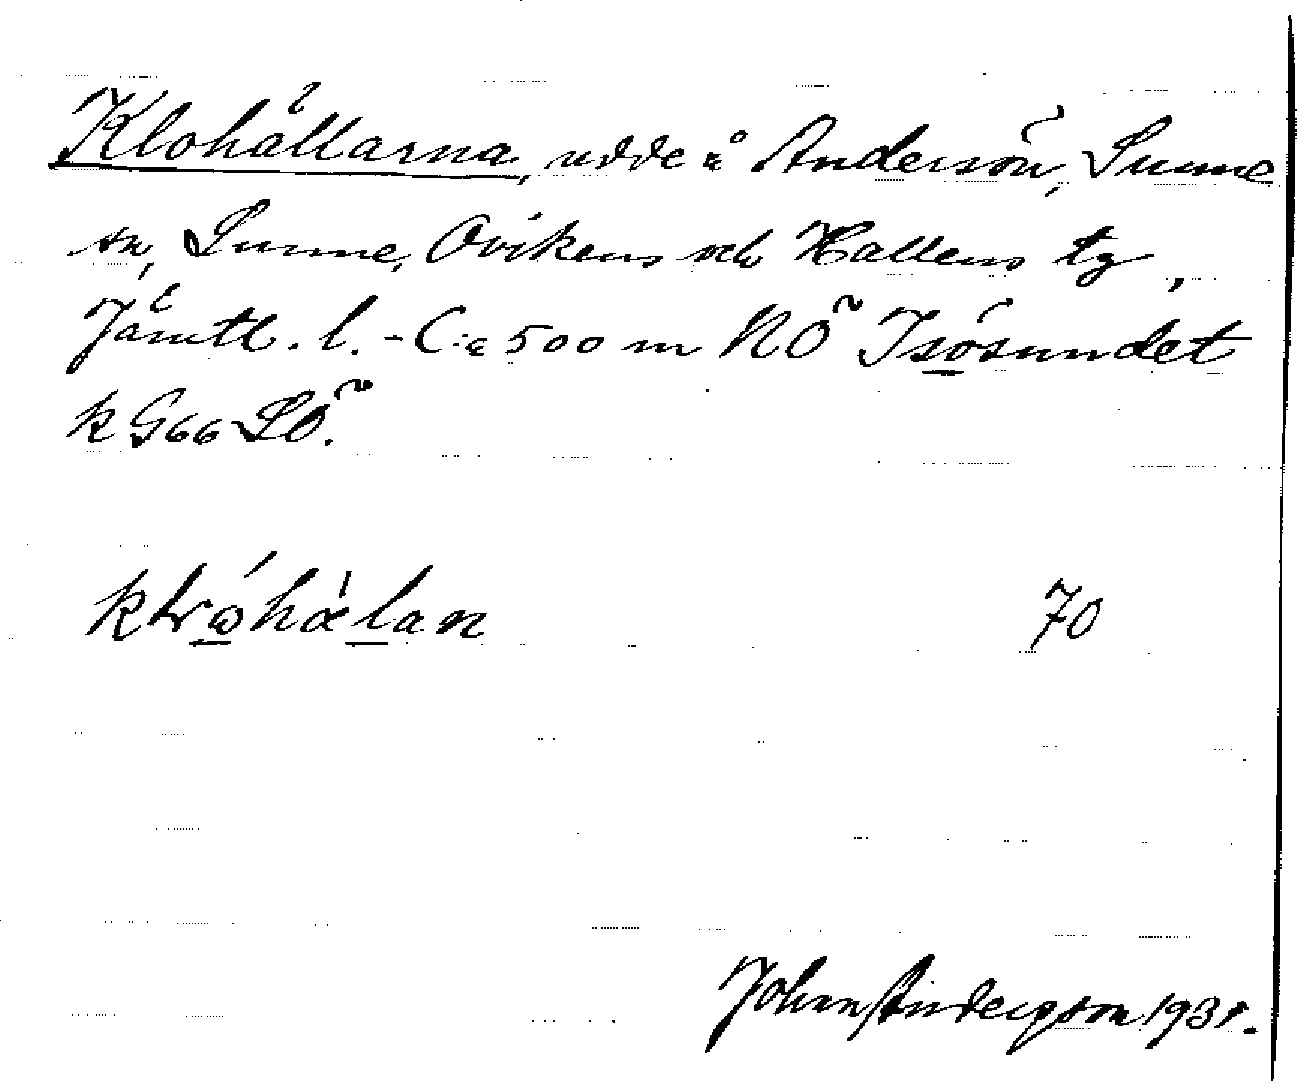 Klohällarna, udde å Andersön, Sunne
sn, Sunne, Ovikens och Hallens tg,
Jämtl. l. - C:a 500 m NÖ Isösundet
k G66 SÖ.
70
Johan Anderzson 1931.